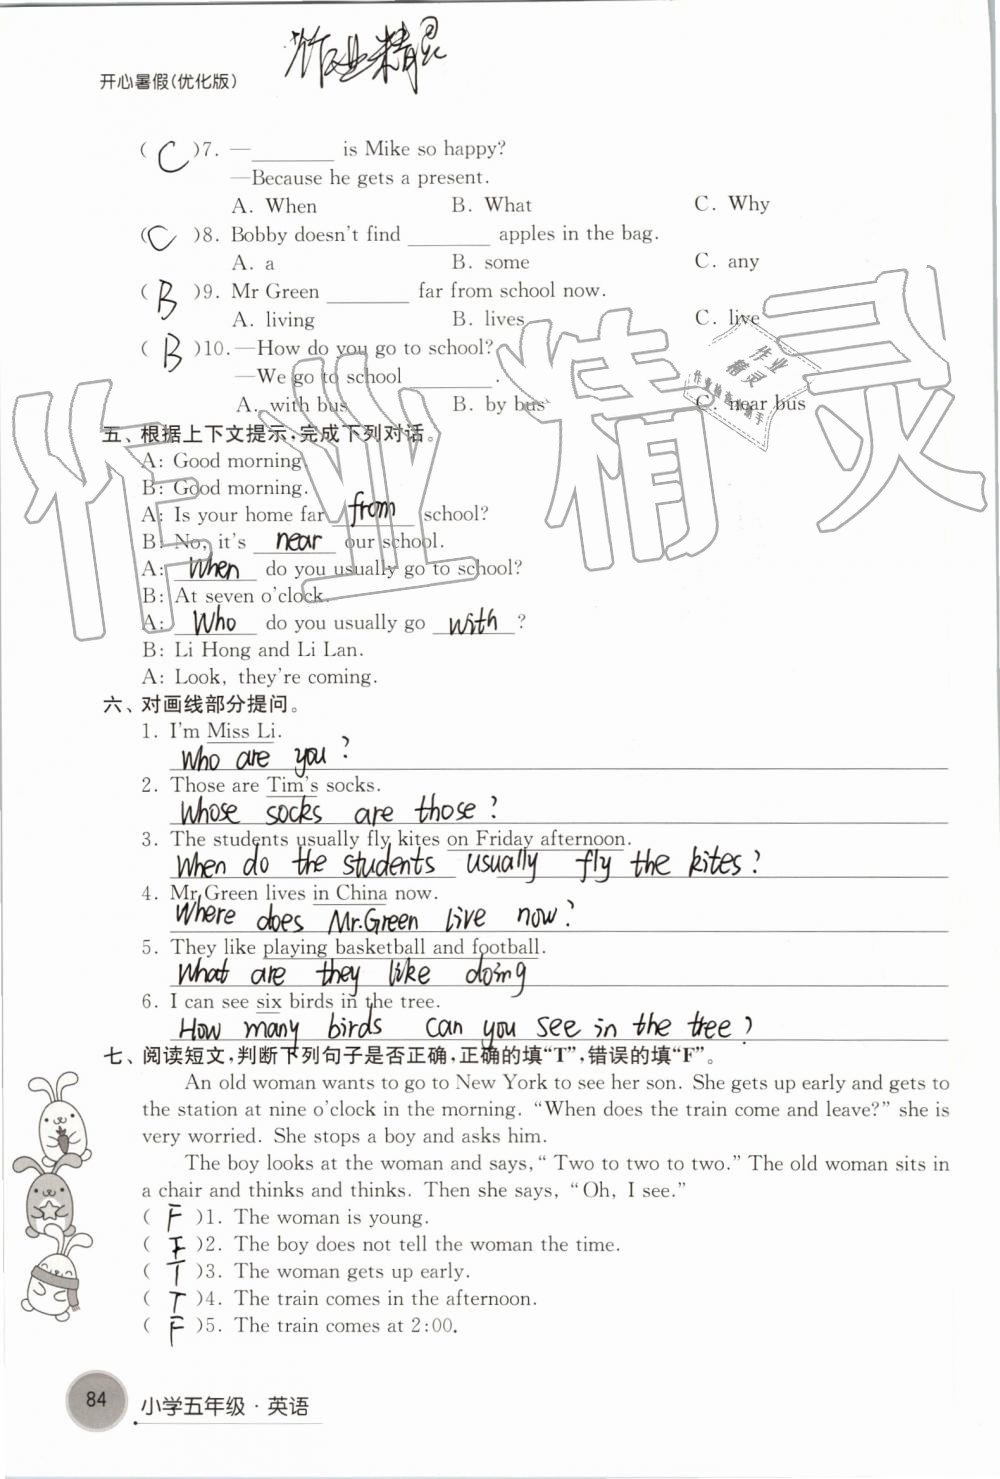 作业精灵
开心暑假(优化版)
( C )7. —________ is Mike so happy?
—Because he gets a present.
A. When B. What C. Why
( C )8. Bobby doesn't find ________ apples in the bag.
A. a B. some C. any
( B )9. Mr Green ________ far from school now.
A. living B. lives C. live
( B )10. —How do you go to school?
—We go to school ________.
A. with bus B. by bus C. near bus
五、根据上下文提示,完成下列对话。
A: Good morning.
B: Good morning.
A: Is your home far from school?
B: No, it's near our school.
A: When do you usually go to school?
B: At seven o'clock.
A: Who do you usually go with ?
B: Li Hong and Li Lan.
A: Look, they're coming.
六、对画线部分提问。
1. I'm Miss Li.
Who are you?
2. Those are Tim's socks.
Whose socks are those?
3. The students usually fly kites on Friday afternoon.
When do the students usually fly the kites?
4. Mr Green lives in China now.
Where does Mr.Green live now?
5. They like playing basketball and football.
What are they like doing
6. I can see six birds in the tree.
How many birds can you see in the tree?
七、阅读短文,判断下列句子是否正确,正确的填“T”,错误的填“F”。
An old woman wants to go to New York to see her son. She gets up early and gets to
the station at nine o'clock in the morning. “When does the train come and leave?” she is
very worried. She stops a boy and asks him.
The boy looks at the woman and says, “ Two to two to two.” The old woman sits in
a chair and thinks and thinks. Then she says, “Oh, I see.”
( F )1. The woman is young.
( F )2. The boy does not tell the woman the time.
( T )3. The woman gets up early.
( T )4. The train comes in the afternoon.
( F )5. The train comes at 2:00.
84 小学五年级·英语
作业精灵
作业
精灵